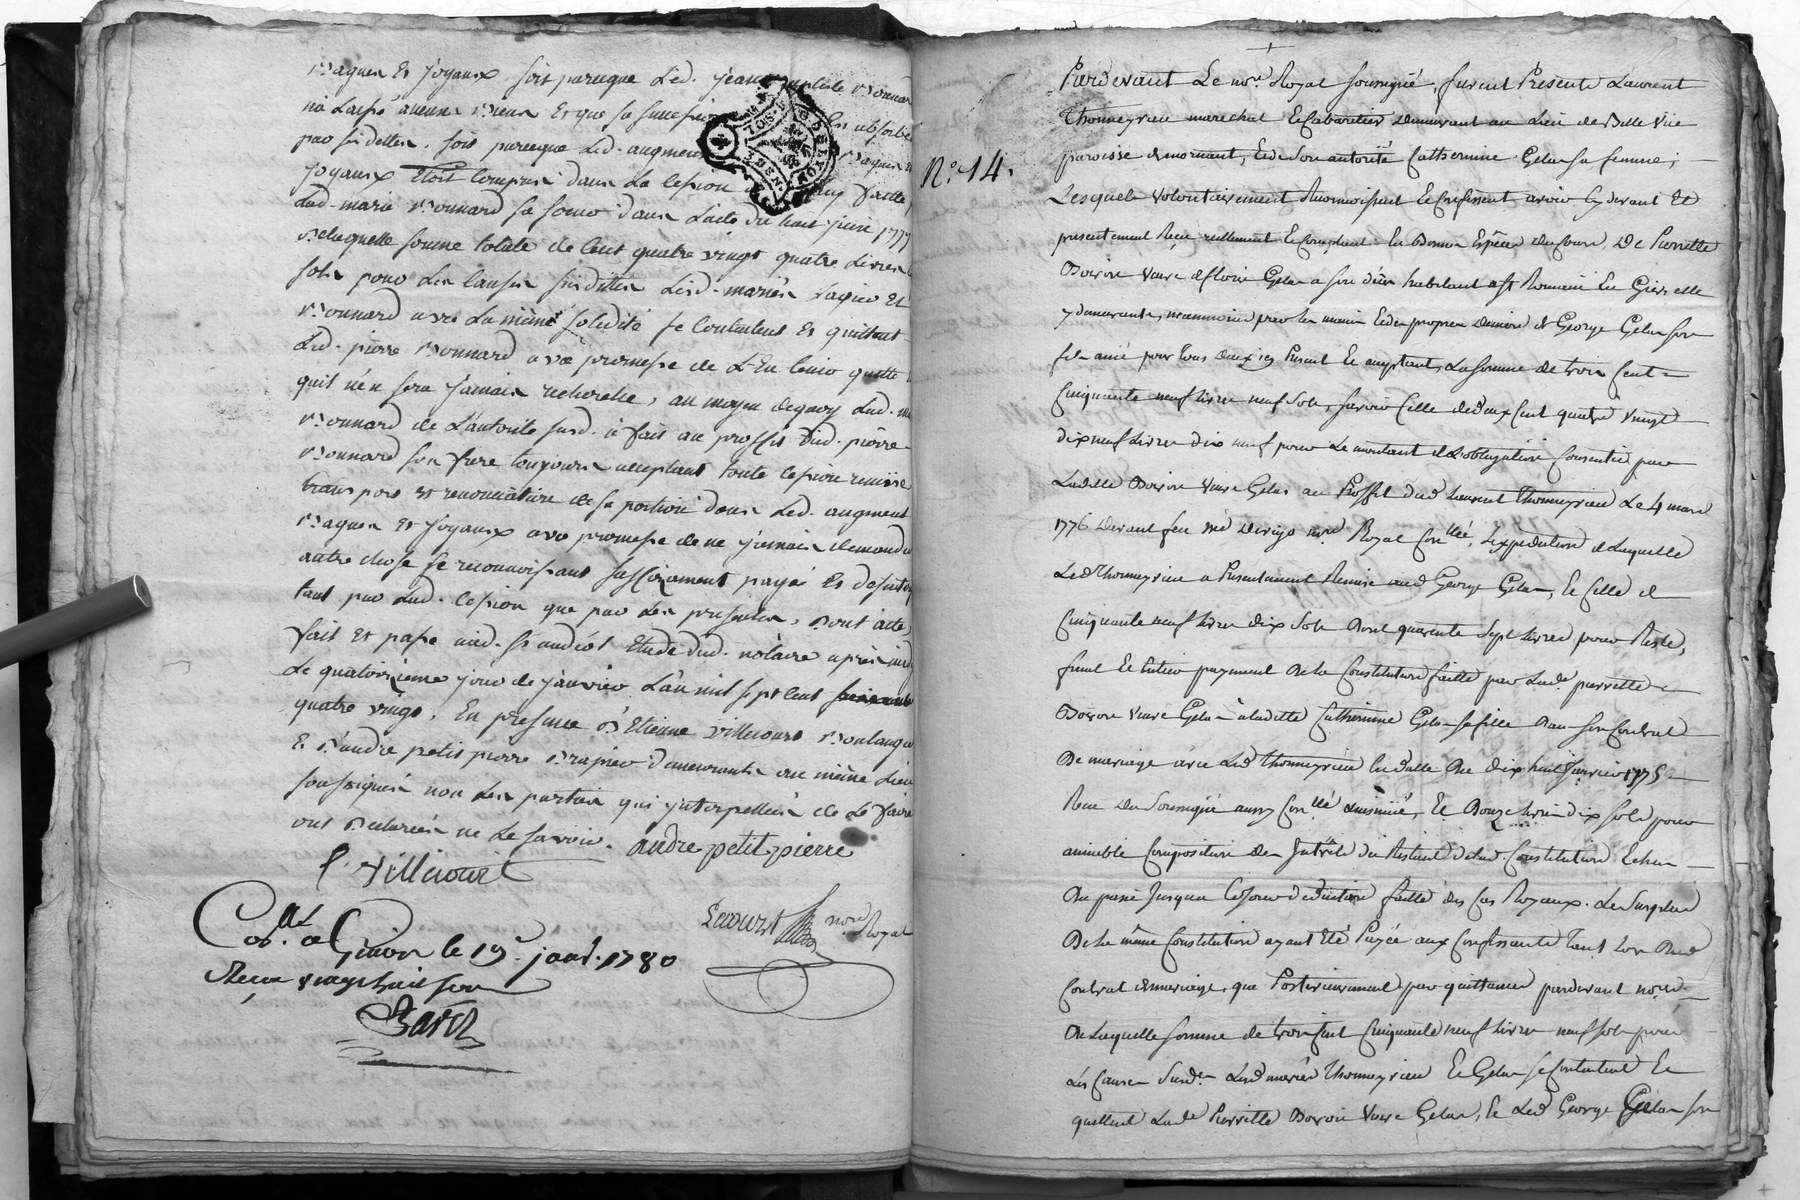 Bagues et Joyaux, soit parceque Led. jean Baptiste Bonnard
n'a Laissé aucuns Biens Et que sa succession Est absorbée
par ses dettes. soit parceque Led. augment Bagues et
joyaux Etoit Compris dans La Cession faitte
Lad. marie Bonnard sa soeur dans L'acte du huit juin 1777
De laquelle somme totale de Cent quatre vingt quatre Livres
sols pour Les Causes susdittes Lesd. mariés Et
Bonnard avec La même solidité se Contentent Et quittent
Led. pierre Bonnard avec promesse de L'En tenir quitte
quil n'en sera jamais recherché, au moyen dequoy Lad. m
Bonnard de L'autorité susd. a fait au proffit dud. pierre
Bonnard son frere toujours acceptant toute Cession remise
transport et renonciation de sa portion dans Led. augment
Bagues Et Joyaux avec promesse de ne jamais demander
autre chose se reconnoissant suffisament payé Et
tant par Lad. Cession que par Les presentes, Dont acte,
fait Et passé aud. St andéol Etude dud. notaire après midy
Le quatorzieme jour de janvier L'an mil sept cent
quatre vingt. En presence D'Etienne Villecourt Boulanger
& D'andre petit pierre Drapier demeurants au même Lieu
soussignés non Les parties qui jnterpellées de Le faire
ont Declarées ne Le savoir. andre petit pierre
E. Villecourt
Lecourt nore. Royal
Con.llé a Givors le 19e. janv. 1780
Recu vingt huit sous
Baron
N.° 14.
Pardevant Le nore. Royal soussigné, furent Presents Laurent
Thomeyrieu marechal Et Cabaretier Demeurant au Lieu de Belle Vue
paroisse de mornant, Et de Son autorité Catherine Gelas sa femme;
Lesquels volontairement Reconnoissent Et Confessent avoir cy devant Et
presentement Recu reellement Et Comptant En Bonnes Especes du Cours, De Pierrette
Boiron veuve de Gelas a son déces habitant a St Romain En Giers elle
y demeurante, neanmoins par les mains Et des propres Deniers de George Gelas son
fils ainé pour tous deux icy Present Et acceptant, La somme de trois Cent
Cinquante neuf livres neuf Sols, savoir Celle de deux Cent quatre vingt
dix neuf Livres dix neuf pour Le montant de L'obligation Consentie par
Laditte Boiron veuve Gelas au Proffit dud Laurent Thomeyrieu Le 4 mars
1776 Devant feu me nore. Royal Con.llée, L'expedition de Laquelle
Led Thomeyrieu a Presentement Remise aud George Gelas, Et Celle de
Cinquante neuf livres dix Sols Dont quarente Sept livres pour Reste,
final Et Entier payement De la Constitution faitte par Lade. pierrette
Boiron veuve Gelas à laditte Catherine Gelas sa fille Dans son Contrat
De mariage avec Led Thomeyrieu En datte Du dix huit Janvier 1775
Recu Du Soussigné aussy Con.llé & insinué, Et Douze livres dix sols pour
amiable Composition Des Interêts du Restant de lad Constitution Echus
Du passé Jusqua Ce jour deduction faitte des Cas Royaux. Le Surplus
De la même Constitution ayant été Payée aux Confessants tant lors Dud
Contrat de mariage, que Posterieurement par quittances pardevant nore.
De Laquelle somme de trois Cent Cinquante neuf livres neuf sols pour
Les Causes Susdes. Lesd mariés Thomeyrieu Et Gelas se Contentent Et
quittent Lade Pierrette Boiron veuve Gelas, Et Led George Gelas son